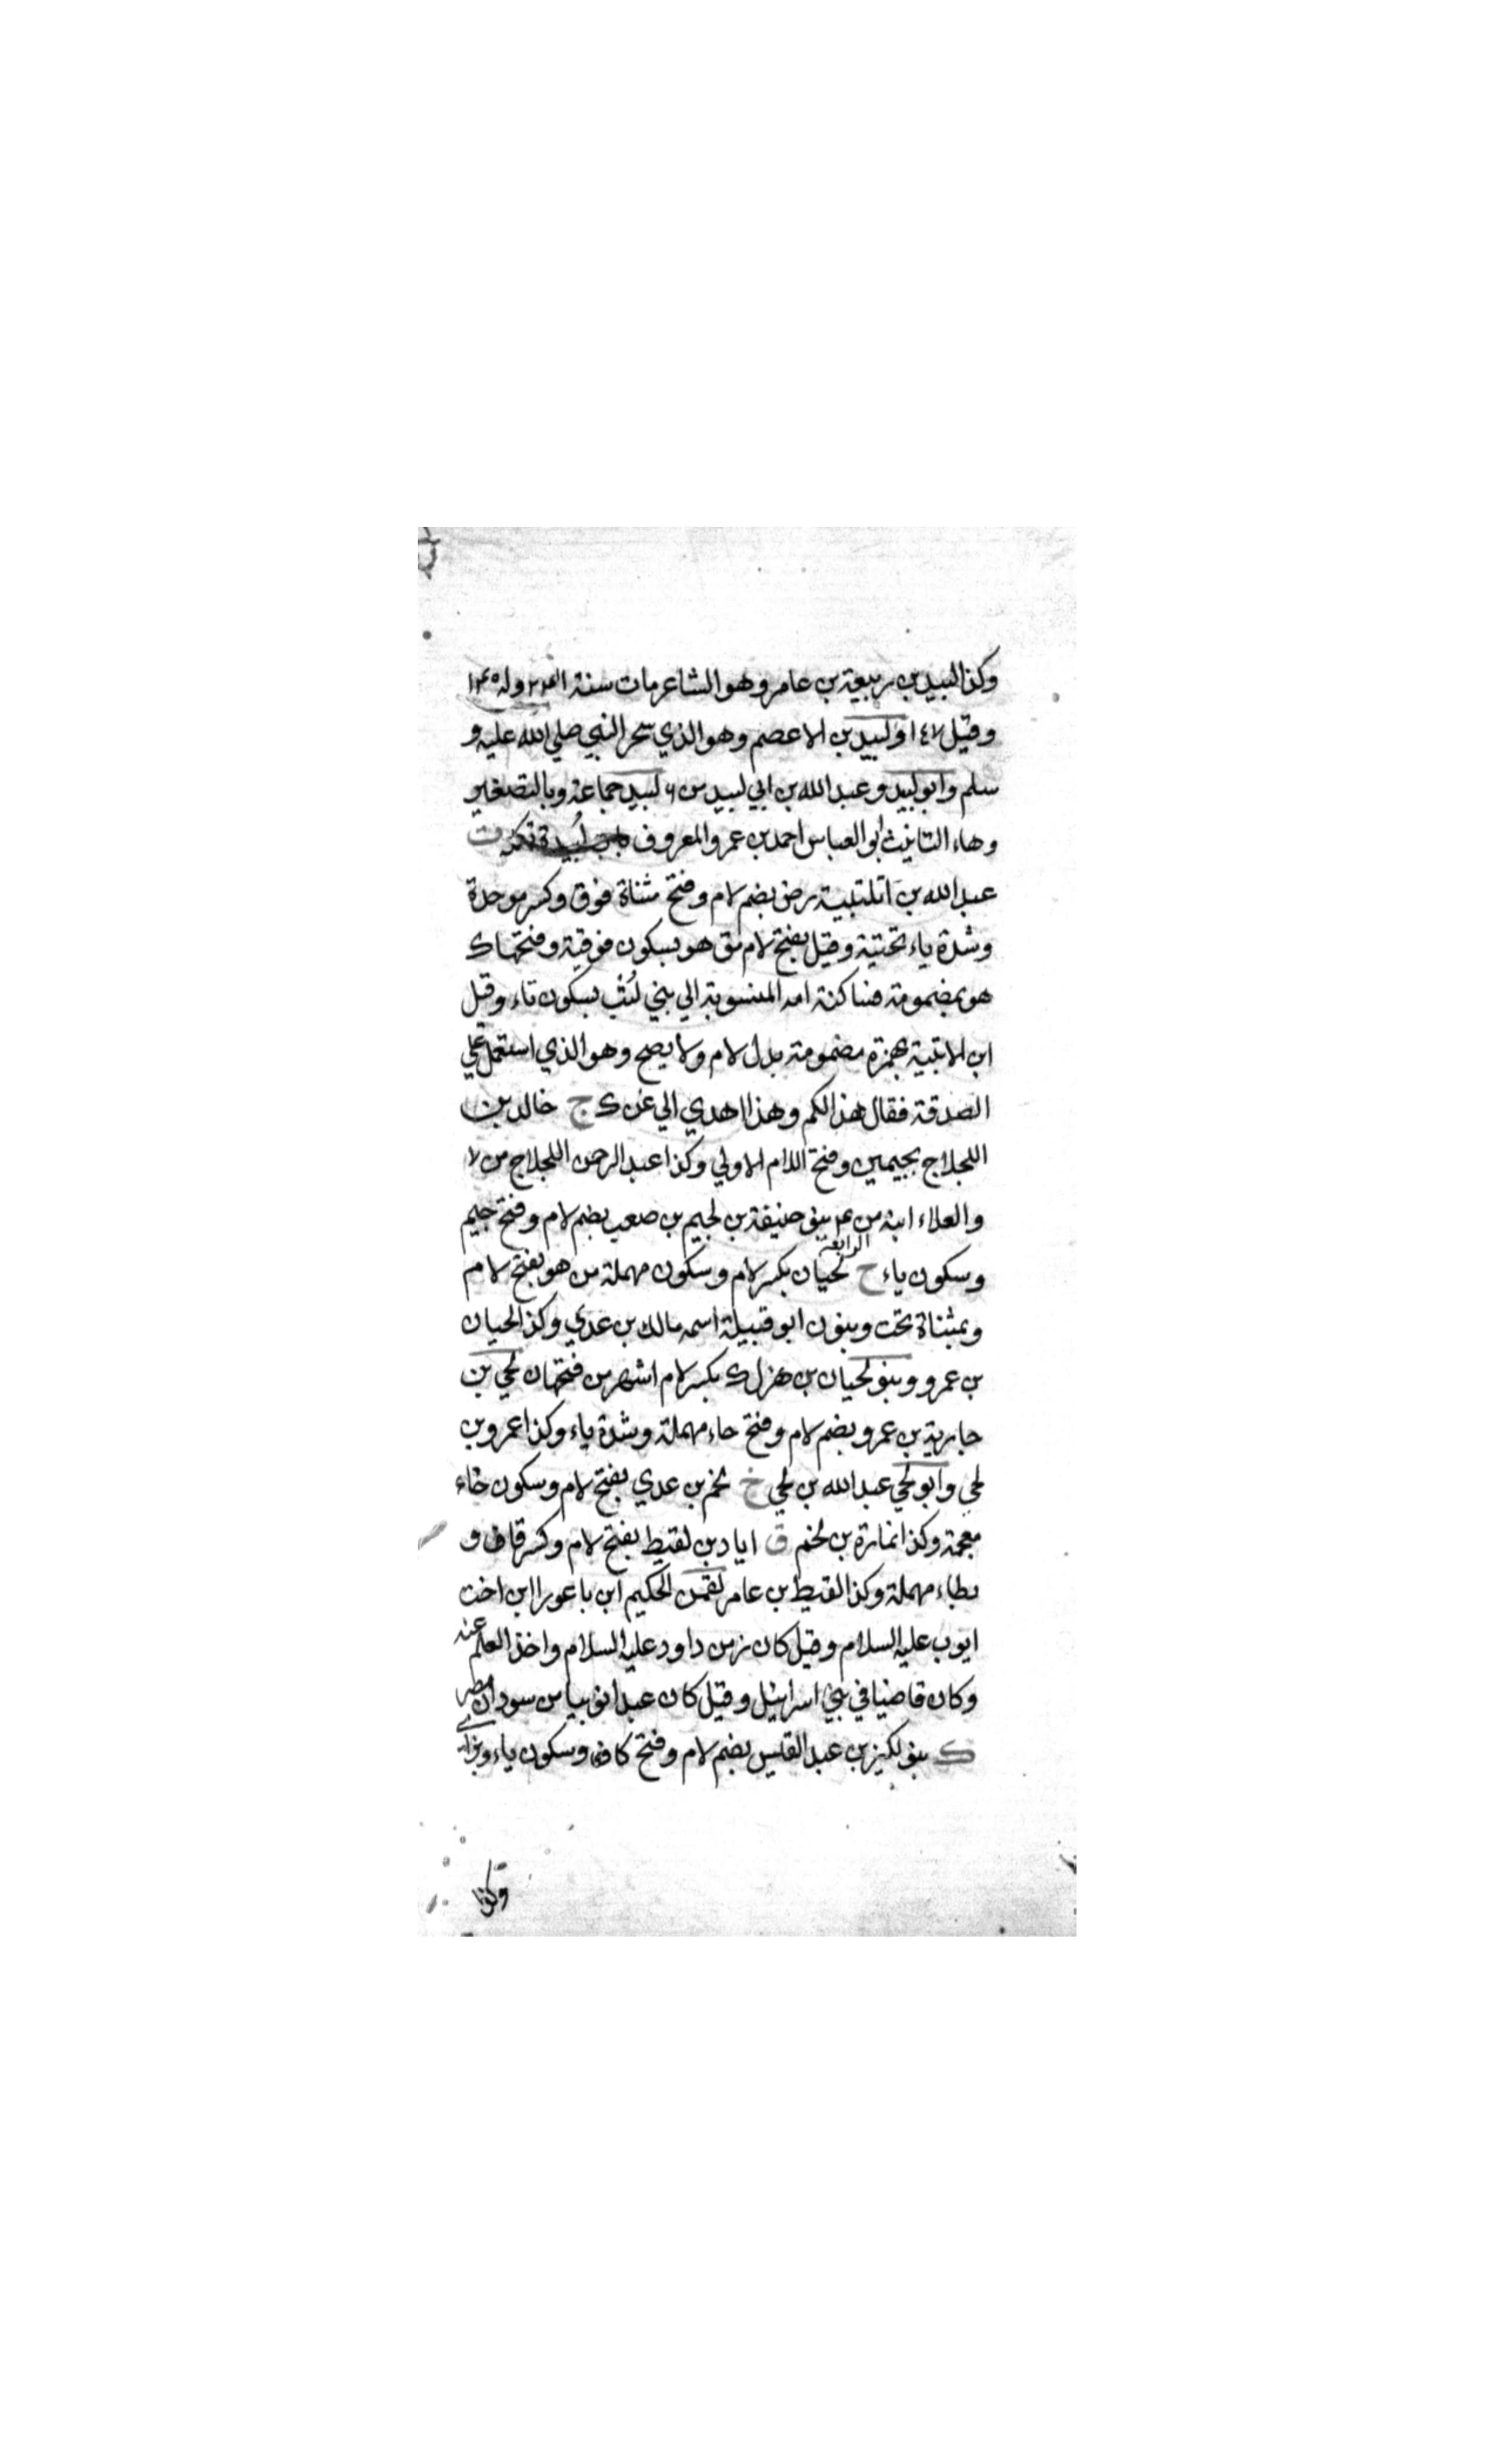 وكذا لبيد بن ربيعة بن عامر وهو الشاعر مات سنة
وقيل ١٤٧ ولبيد بن الاعصم وهو الذي سحر النبي صلي الله عليه و
سلم وابو لبيد وعبد الله بن ابي لبيد س ٦ لبيد جماعة وبالتصغير
وهاء التانيث ابو العباس احمد بن عمرو المعروف لبيدة ت
عبد الله بن اتلتبية رض بضم لام وفتح مثناة فوق وكسر موحدة
وشدة ياء تحتية وقيل بفتح لام مق هو بسكون فوقية وفتحها ك
هو بمضمومة فساكنة امه المنسوبة الي بني لتب بسكون تاء وقيل
ابن الاتبية بهمزة مضمومة بدل لام ولا يصح وهو الذي استعمل علي
الصدقة فقال هذا لكم وهذا اهدي الي عن ك ج خالد بن
اللجلاج بجيمين وفتح اللام الاولي وكذا عبد الرحمن اللجلاج من لا
والعلاء ابنه من ع بنو حنيفة بن لجيم بن صعب بضم لام وفتح جيم
وسكون ياء ح الرابعة لحيان بكسر لام وسكون مهملة من هو بفتح لام
وبمثناة تحت وبنون ابو قبيلة اسمه مالك بن عدي وكذا لحيان
بن عمرو وبنو لحيان بن هزل ك بكسر لام اشهر من فتحها ن لحي بن
جارية بن عمرو بضم لام وفتح حاء مهملة وشدة ياء وكذا عمرو بن
لحي وابو لحي عبد الله بن لحي خ لخم بن عدي بفتح لام وسكون خاء
معجمة وكذا نمارة بن لخم ق اياد بن لقيط بفتح لام وكسر قاف و
بطاء مهملة وكذا لقيط بن عامر لقمن الحكيم ابن باعورا ابن اخت
ايوب عليه السلام وقيل كان زمن داود عليه السلام واخذ العلم عنه
وكان قاضيا في بني اسرائيل وقيل كان عبدا نوبيا من سودان مصر
ك بنو لكيز بن عبد القيس بضم لام وفتح كاف وسكون ياء وبزاي
وكذا